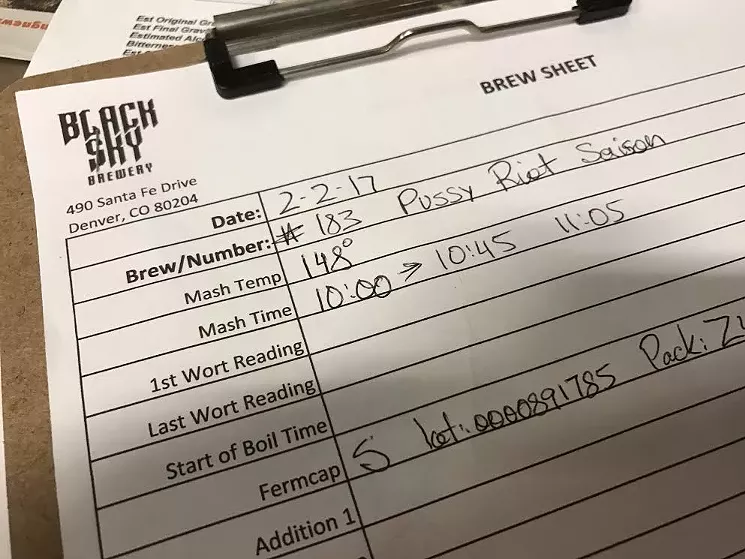 Est Original Gr
Est Final Grav
Estimated Alc
Bitterne
Est
BREW SHEET
BLACK
SKY
BREWERY
490 Santa Fe Drive
Denver, CO 80204
Date: 2-2-17
Brew/Number: # 183 Pussy Riot Saison
Mash Temp 148°
Mash Time 10:00 → 10:45 11:05
1st Wort Reading
Last Wort Reading
Start of Boil Time
Fermcap 5 Lot: 0000891785 Pack:
Addition 1